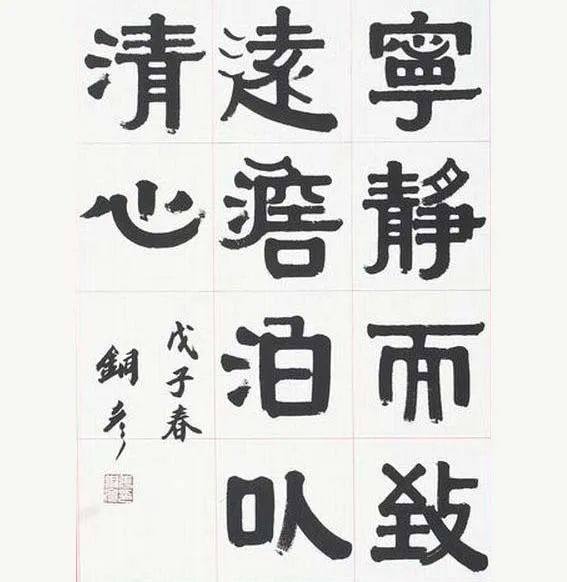 寧靜而致
遠澹泊以
清心
戊子春
銅彥